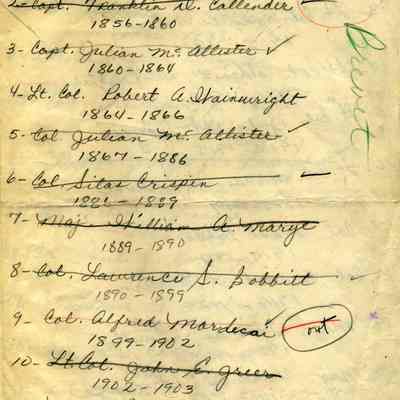 2- Capt. Franklin D. Callender
1856-1860
3- Capt. Julian Mc Allister
1860-1864
4- Lt. Col. Robert A. Wainwright
1864-1866
5- Col Julian Mc Allister
1867-1886
6- Col. Silas Crispin
1886-1889
7- Maj. William A. Marye
1889-1890
8- Col. Lawrence S. Babbitt
1890-1899
9- Col. Alfred Mordecai out
1899-1902
10- Lt. Col. John E. Greer
1902-1903
Brevet